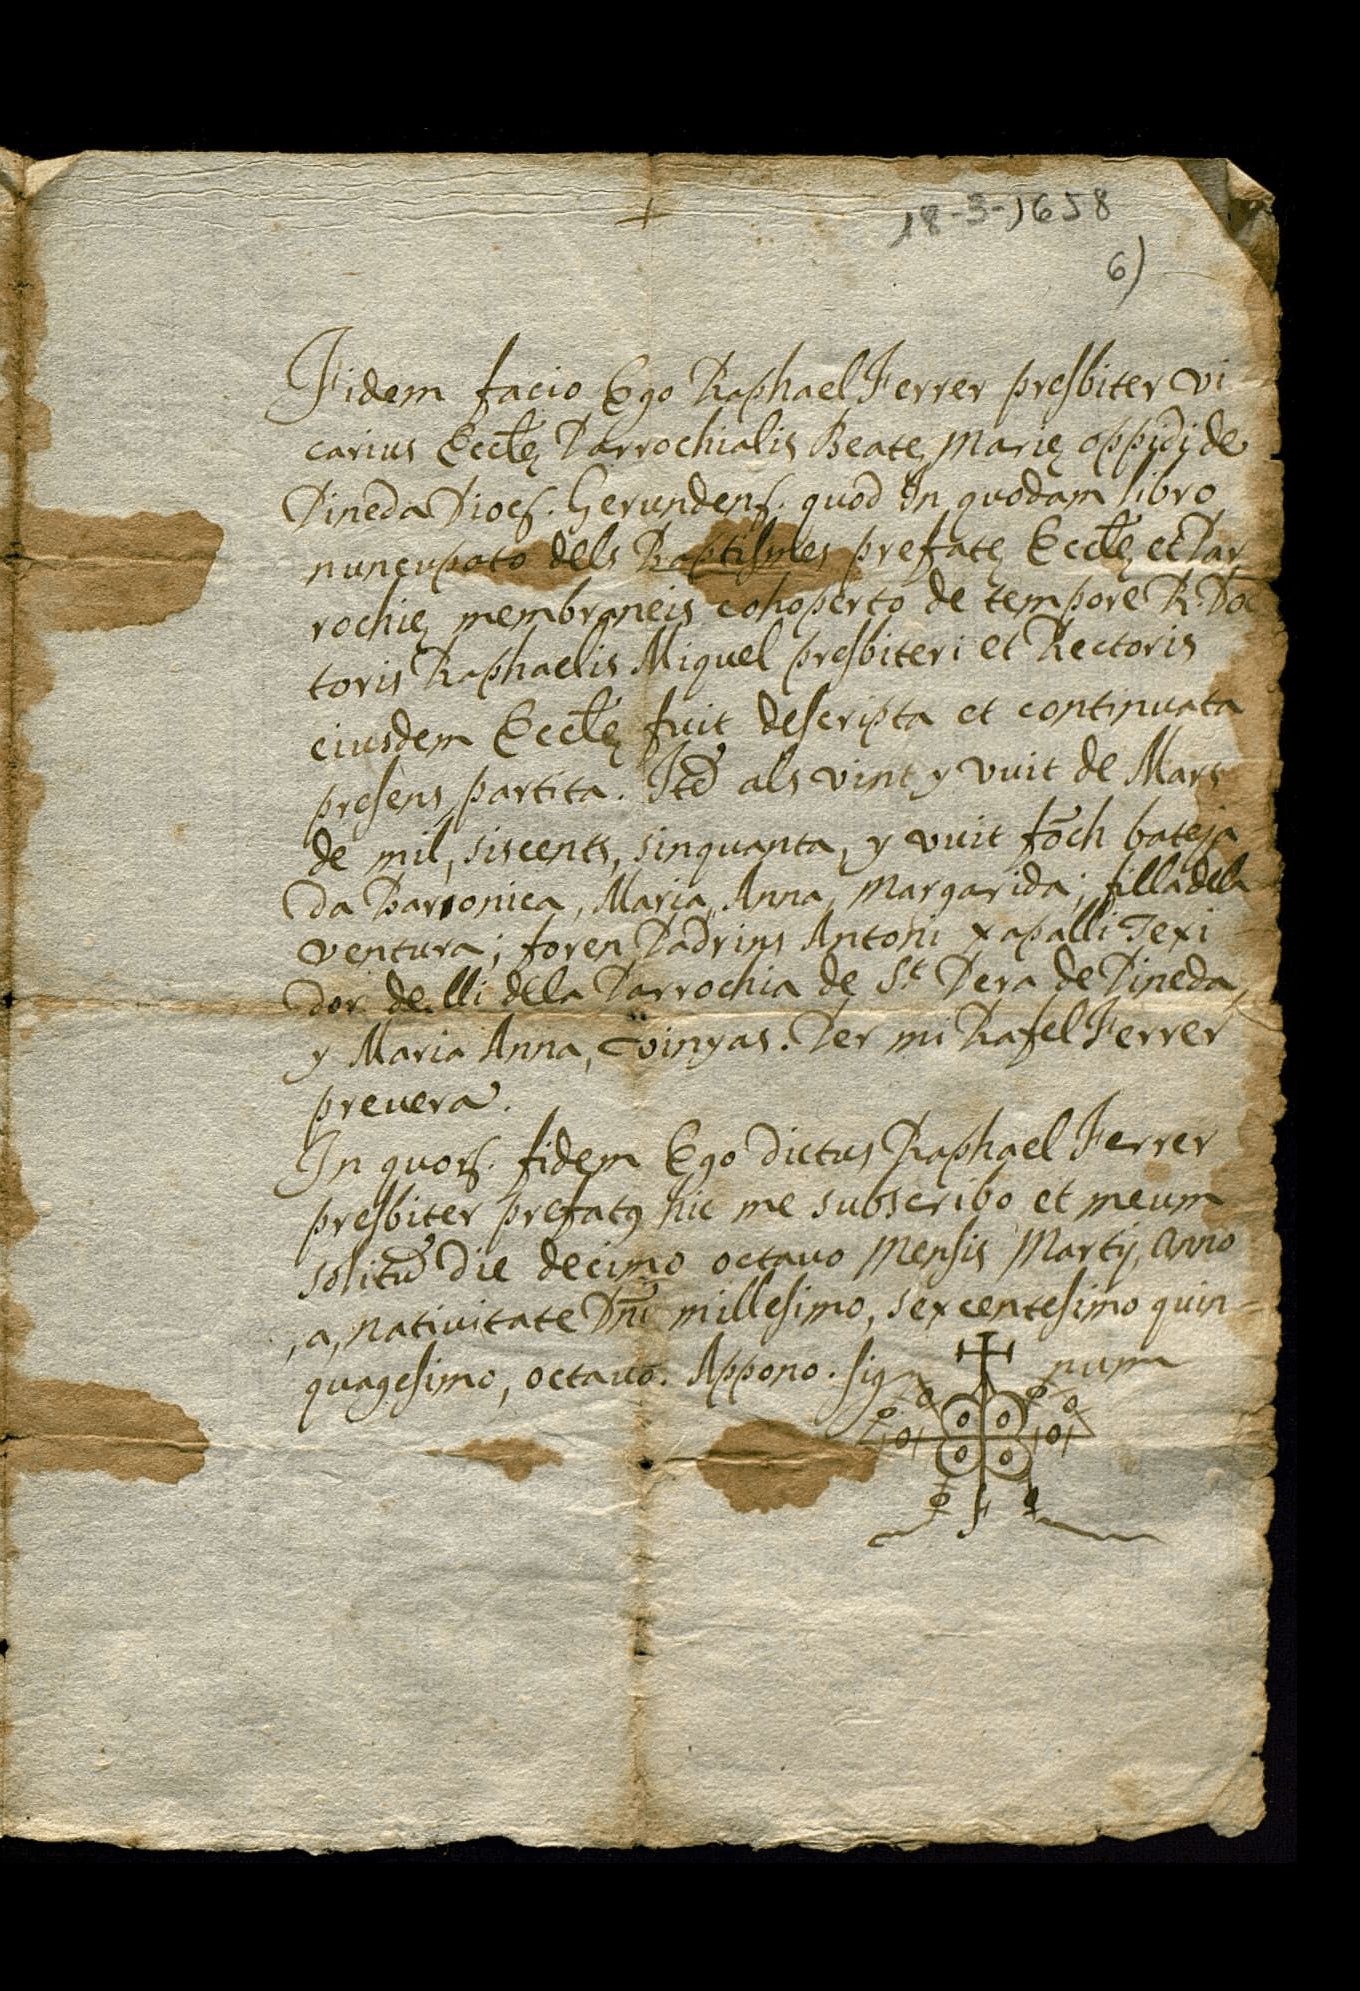 18-3-1658
6)
Fidem facio Ego Raphael Ferrer presbiter vi
carius Eccłę Parrochialis Beatę Marię oppidi de
Pineda Dioeſ. Gerundenſ. quod In quodam libro
nuncupato dels Baptiſmes prefatę Eccłę et Par
rochię membraneis cohoperto de tempore R. Doc
toris Raphaelis Miquel preſbiteri et Rectoris
eiusdem Eccłę fuit deſcripta et continuata
preſens partita. Itē als vint y vuit de Mars
de mil, siscents, sinquanta, y vuit fōch bateja
da Parronica, Maria, Anna, Margarida; filla dela
ventura; foren Padrins Antoni xapalli Texi
dor de lli dela Parrochia de St Pera de Pineda,
y Maria Anna, vinyas. Per mi Rafel Ferrer
prevera.
In quorſ. fidem Ego dictus Raphael Ferrer
preſbiter prefatꝯ hic me subscribo et meum
solitū die decimo octavo Menſis Martij, Anno
, a, nativitate Dn̄i milleſimo, sexcentesimo quin=
quagesimo, octavo. Appono. Sig num